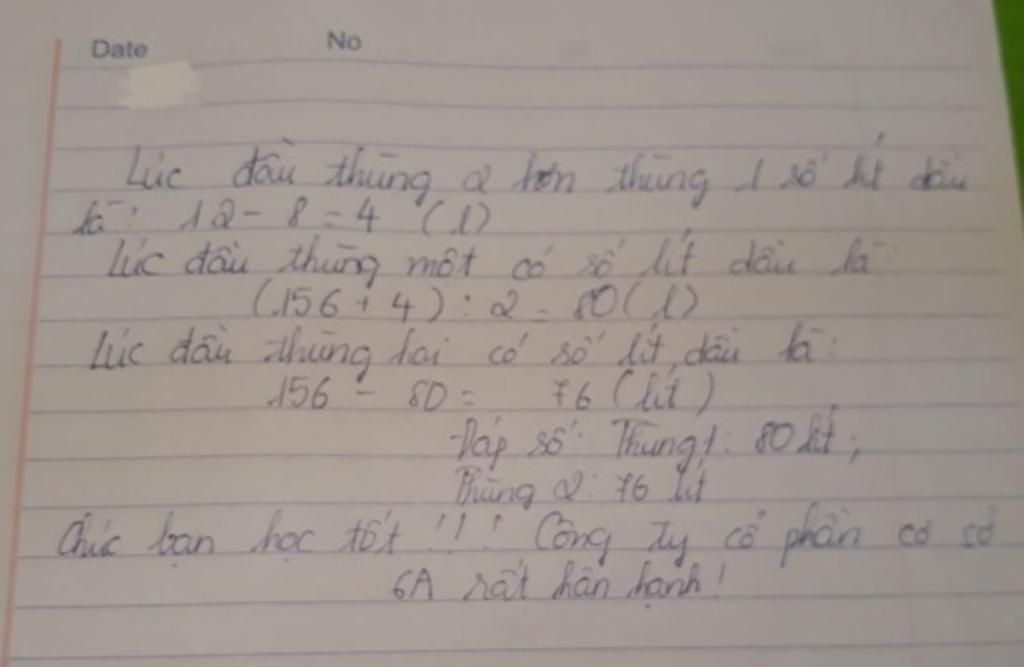 Date No
Lúc đầu thùng 2 hơn thùng 1 số lít dầu
là: 12 - 8 = 4 (l)
Lúc đầu thùng một có số lít dầu là:
(156 + 4) : 2 = 80 (l)
Lúc đầu thùng hai có số lít dầu là:
156 - 80 = 76 (lít)
Đáp số: Thùng 1: 80 lít;
Thùng 2: 76 lít
Chúc bạn học tốt !!! Công ty cổ phần
6A rất hân hạnh!